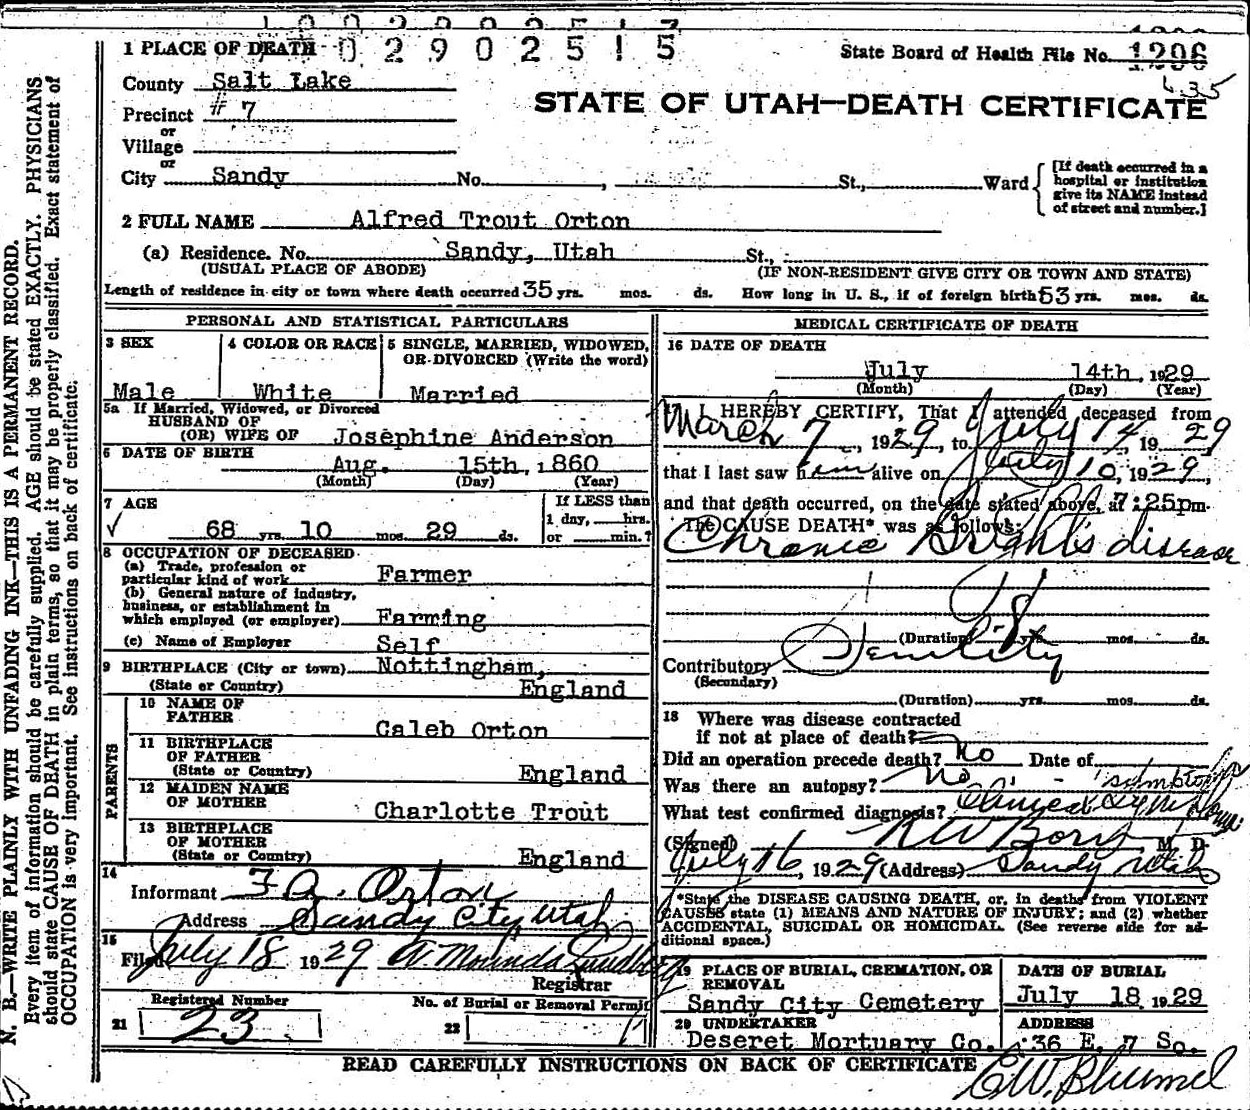 0 2 9 0 2 5 1 5
State Board of Health File No. 1206
635
1 PLACE OF DEATH
County Salt Lake
Precinct # 7
or
Village
or
City Sandy No. , St., Ward
[If death occurred in a hospital or institution give its NAME instead of street and number.]
STATE OF UTAH—DEATH CERTIFICATE
2 FULL NAME Alfred Trout Orton
(a) Residence. No. Sandy, Utah St.,
(USUAL PLACE OF ABODE) (IF NON-RESIDENT GIVE CITY OR TOWN AND STATE)
Length of residence in city or town where death occurred 35 yrs. mos. ds. How long in U. S., if of foreign birth 53 yrs. mos. ds.
PERSONAL AND STATISTICAL PARTICULARS
3 SEX
Male
4 COLOR OR RACE
White
5 SINGLE, MARRIED, WIDOWED, OR DIVORCED (Write the word)
Married
5a If Married, Widowed, or Divorced
HUSBAND OF
(OR) WIFE OF Josephine Anderson
6 DATE OF BIRTH
Aug. 15th, 1860
(Month) (Day) (Year)
7 AGE
68 yrs. 10 mos. 29 ds.
If LESS than
1 day, hrs.
or min.?
8 OCCUPATION OF DECEASED
(a) Trade, profession or
particular kind of work Farmer
(b) General nature of industry,
business, or establishment in
which employed (or employer) Farming
(c) Name of Employer Self
9 BIRTHPLACE (City or town) Nottingham,
(State or Country) England
PARENTS
10 NAME OF
FATHER Caleb Orton
11 BIRTHPLACE
OF FATHER
(State or Country) England
12 MAIDEN NAME
OF MOTHER Charlotte Trout
13 BIRTHPLACE
OF MOTHER
(State or Country) England
14
Informant F A. Orton
Address Sandy City, Utah
15
Filed July 18 1929 A
Registrar
Registered Number
21 23
No. of Burial or Removal Permit
22
MEDICAL CERTIFICATE OF DEATH
16 DATE OF DEATH
July 14th, 1929
(Month) (Day) (Year)
17 I HEREBY CERTIFY, That I attended deceased from
March 7, 1929, to July 14, 1929
that I last saw him alive on July 10, 1929,
and that death occurred, on the date stated above, at 7:25pm.
The CAUSE DEATH* was as follows:
Chronic Bright's disease
(Duration) yrs. mos. ds.
Contributory Senility
(Secondary)
(Duration) yrs. mos. ds.
18 Where was disease contracted
if not at place of death?
Did an operation precede death? No Date of
Was there an autopsy? No
What test confirmed diagnosis? Clinical symptoms
(Signed) M. D.
July 16, 1929 (Address) Sandy Utah
*State the DISEASE CAUSING DEATH, or, in deaths from VIOLENT
CAUSES state (1) MEANS AND NATURE OF INJURY; and (2) whether
ACCIDENTAL, SUICIDAL OR HOMICIDAL. (See reverse side for ad-
ditional space.)
19 PLACE OF BURIAL, CREMATION, OR
REMOVAL
Sandy City Cemetery
DATE OF BURIAL
July 18 1929
20 UNDERTAKER
Deseret Mortuary Co.
ADDRESS
36 E. 7 So.
READ CAREFULLY INSTRUCTIONS ON BACK OF CERTIFICATE
N. B.—WRITE PLAINLY WITH UNFADING INK—THIS IS A PERMANENT RECORD.
Every item of information should be carefully supplied. AGE should be stated EXACTLY. PHYSICIANS
should state CAUSE OF DEATH in plain terms, so that it may be properly classified. Exact statement of
OCCUPATION is very important. See instructions on back of certificate.